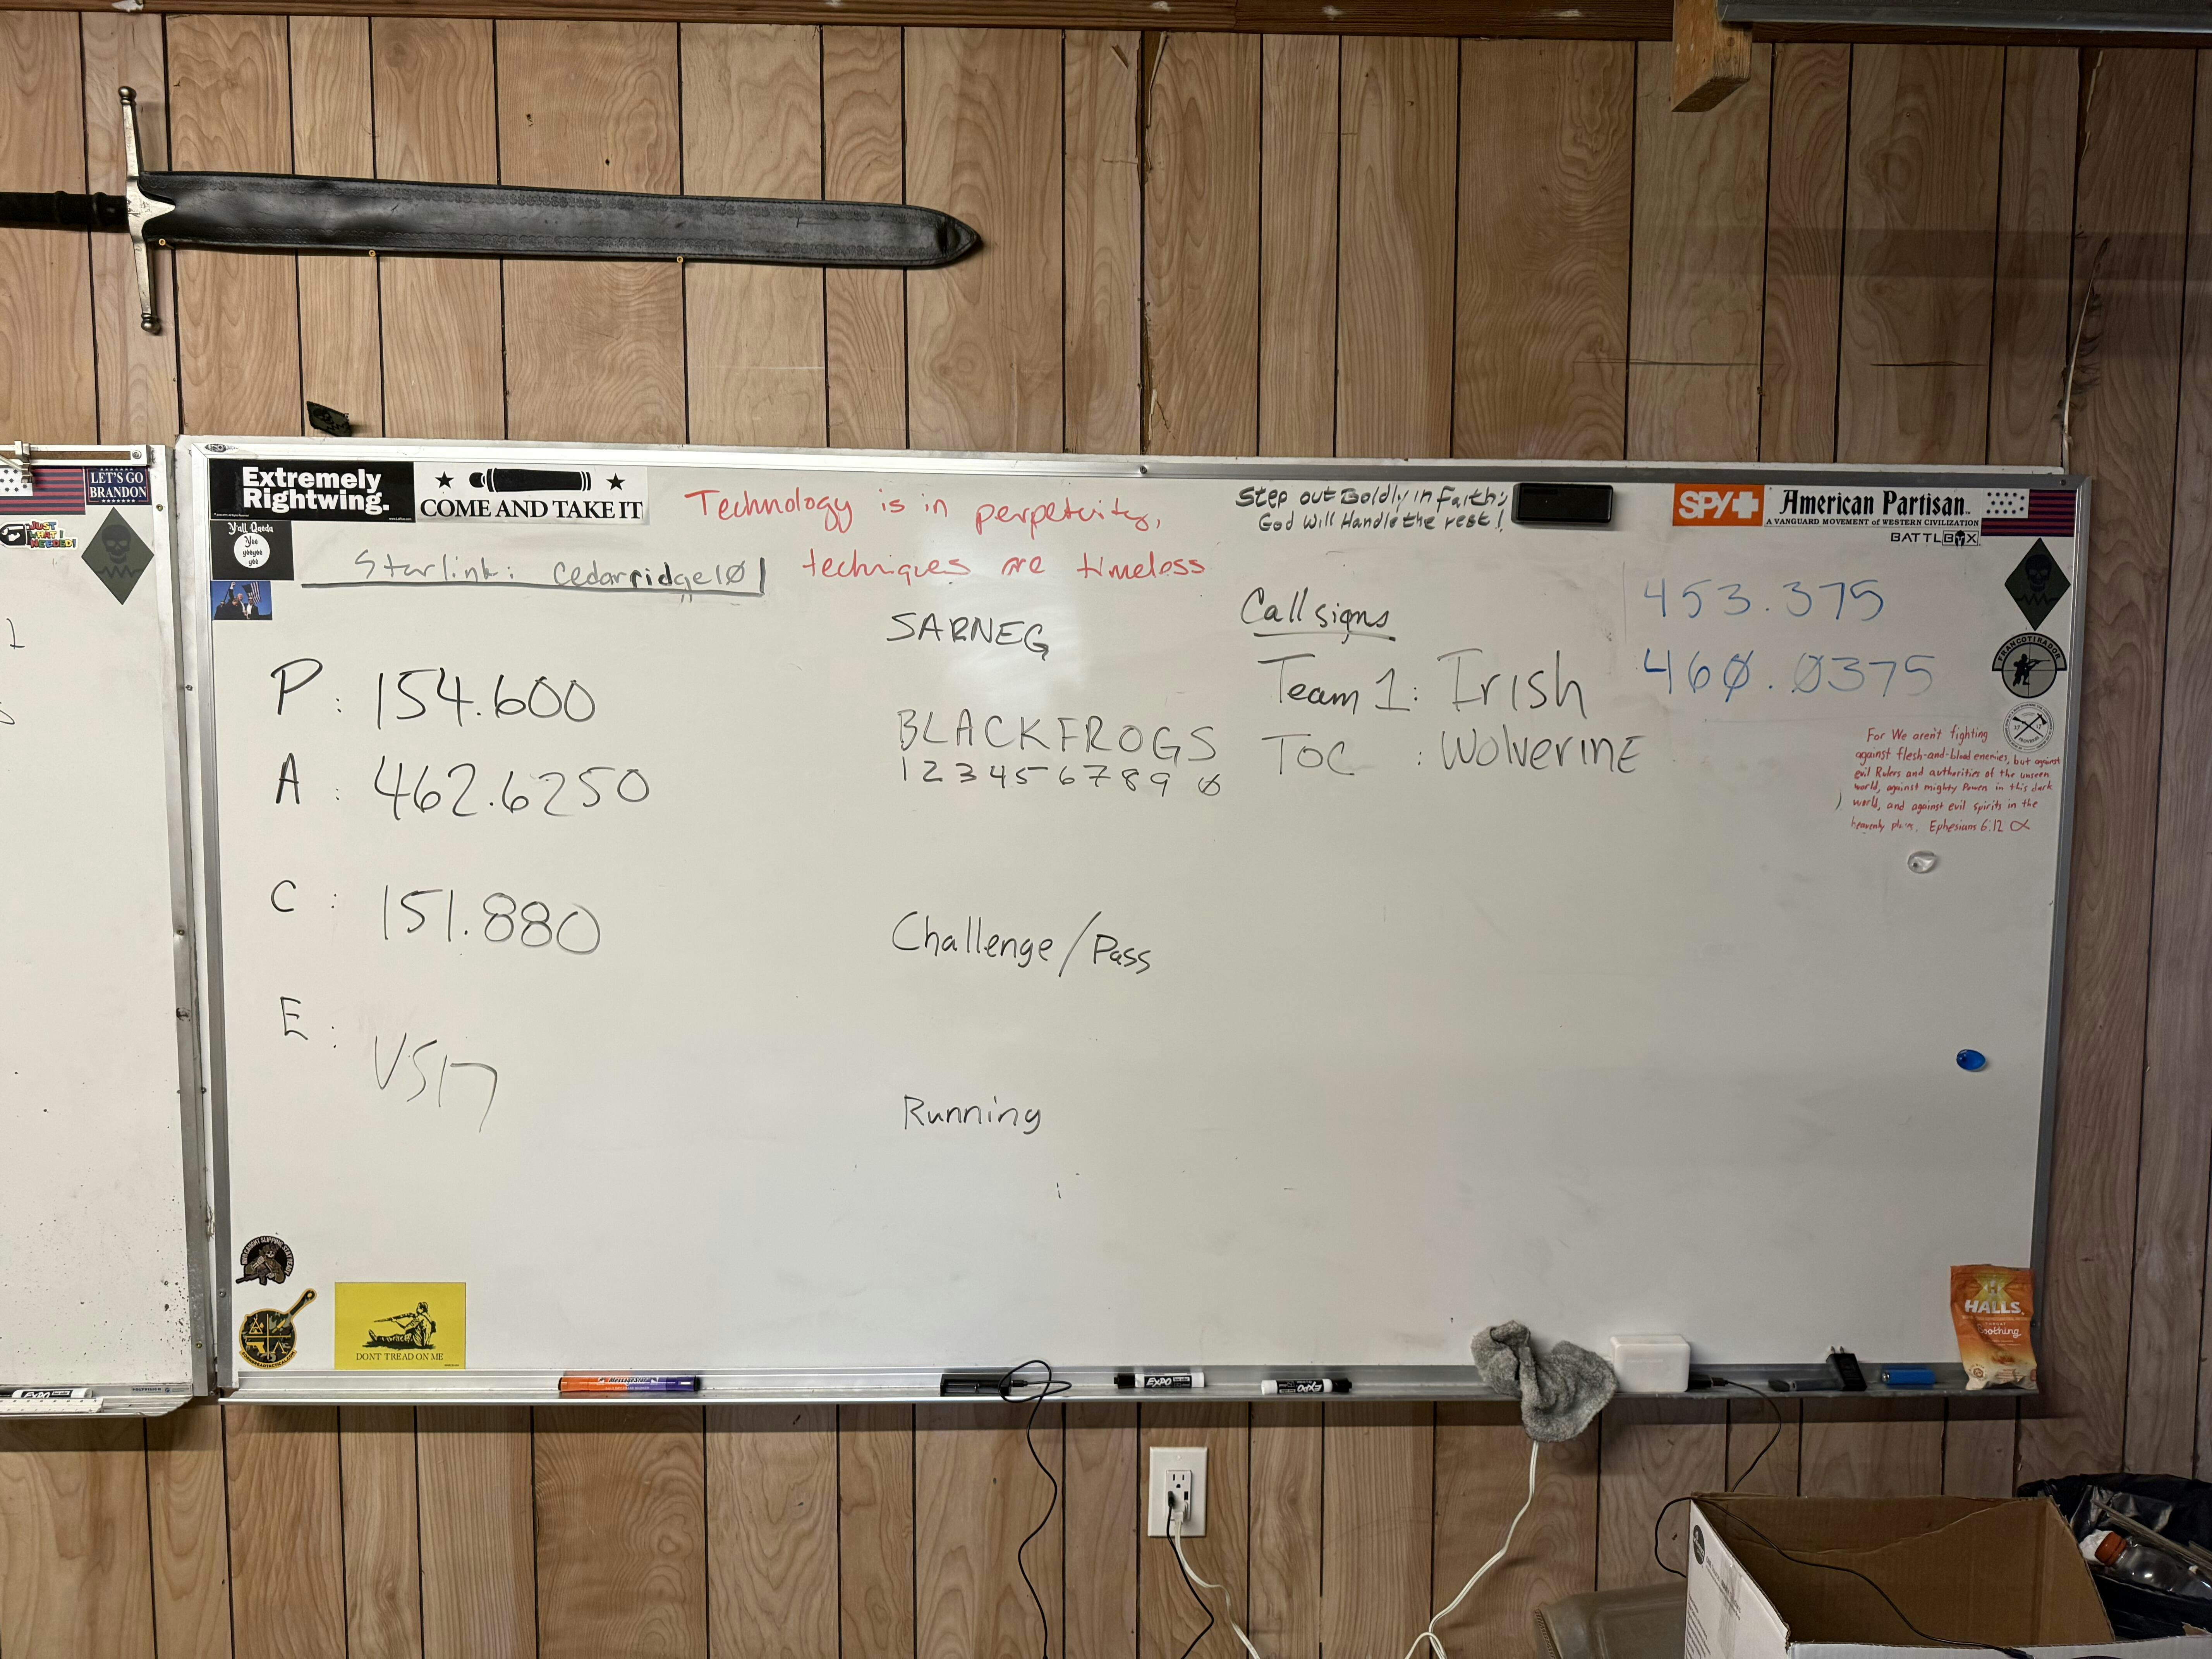 LET'S GO
BRANDON
JUST
WHAT I
NEEDED!
Extremely
Rightwing.
COME AND TAKE IT
Y'all Qaeda
Yee
yeeyee
yee
Starlink: Cedarridge10
Technology is in perpetuity,
techniques are timeless
Step out Boldly in Faith;
God Will Handle the rest!
SPY+
American Partisan
A VANGUARD MOVEMENT of WESTERN CIVILIZATION
BATTLBOX
P: 154.600
A: 462.6250
C: 151.880
E: VS17
SARNEG
BLACKFROGS
1234567890
Challenge/Pass
Running
Call signs
Team 1: Irish
TOC: WolverinE
453.375
460.0375
FRANCOTIRADOR
For We aren't fighting
against flesh-and-blood enemies, but against
evil Rulers and authorities of the unseen
world, against mighty Powers in this dark
world, and against evil spirits in the
heavenly places. Ephesians 6:12
DONT TREAD ON ME
EXPO
EXPO
EXPO
HALLS
Soothing